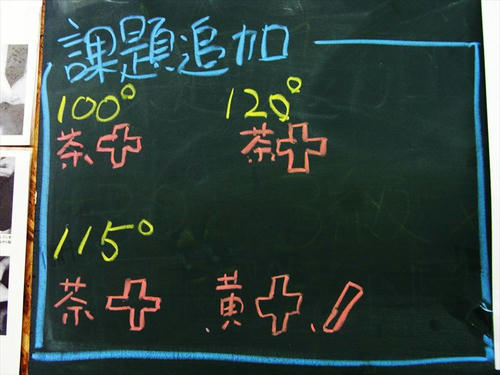 課題追加
100° 120°
茶 茶
115°
茶 黄